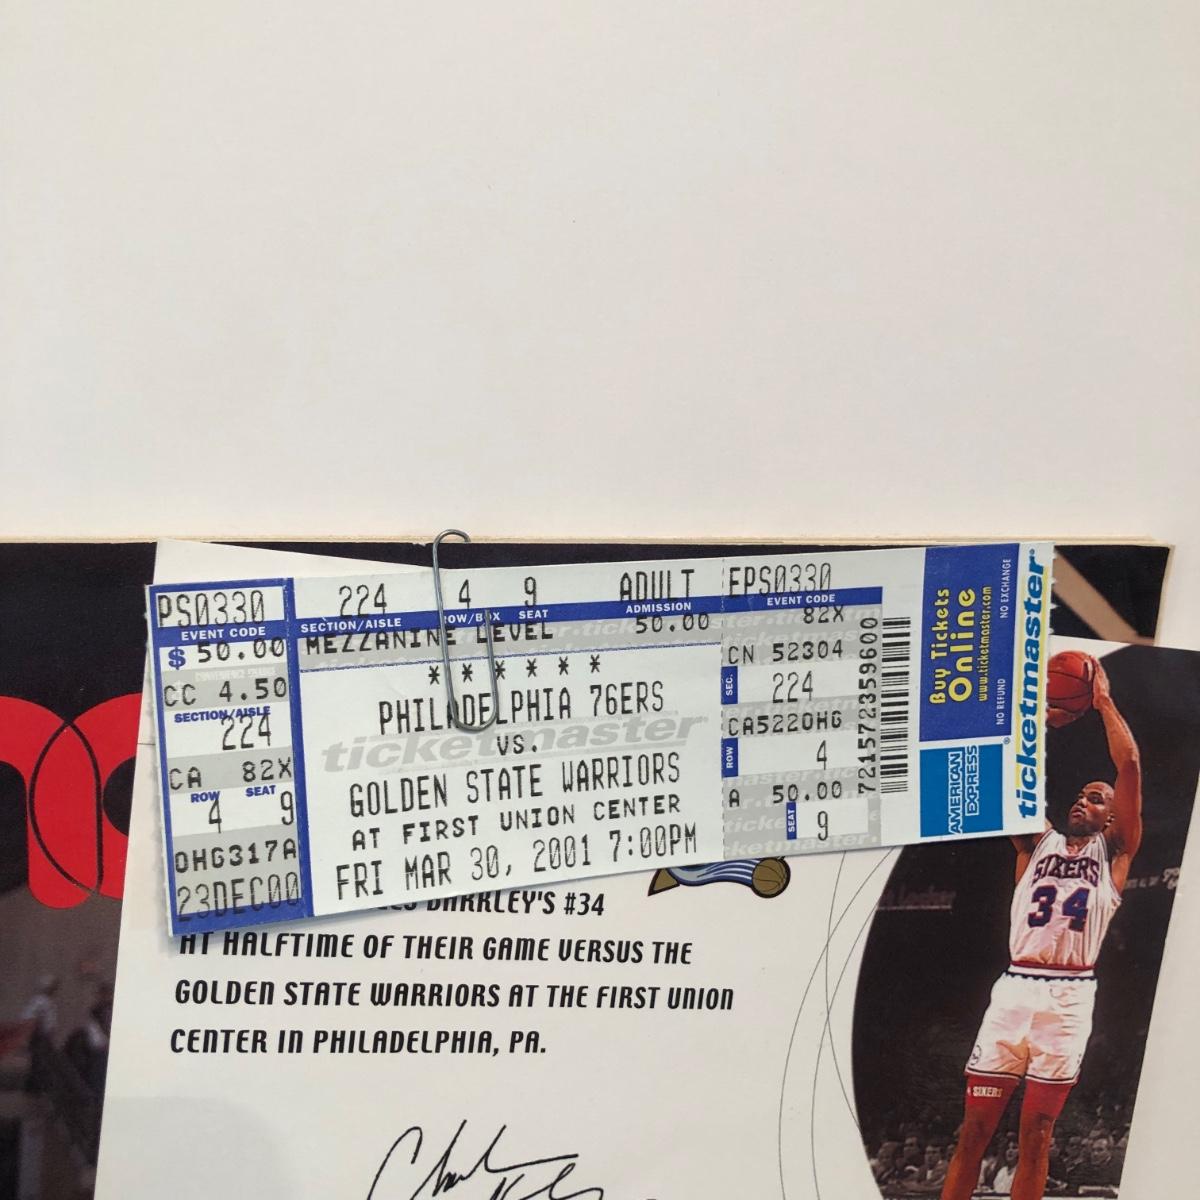 PS0330
EVENT CODE
$ 50.00
CC 4.50
SECTION/AISLE
224
CA 82X
ROW SEAT
4 9
OHG317A
23DEC00
224 4 9 ADULT
SECTION/AISLE ROW/BOX SEAT ADMISSION
MEZZANINE LEVEL 50.00
* * * * * *
PHILADELPHIA 76ERS
VS.
ticketmaster
GOLDEN STATE WARRIORS
AT FIRST UNION CENTER
FRI MAR 30, 2001 7:00PM
EPS0330
EVENT CODE
82X
CN 52304
SEC.
224
CA5220HG
ROW
4
A 50.00
SEAT
9
721572359600
Buy Tickets
Online
www.ticketmaster.com
NO REFUND NO EXCHANGE
AMERICAN
EXPRESS
ticketmaster®
BARKLEY'S #34
AT HALFTIME OF THEIR GAME VERSUS THE
GOLDEN STATE WARRIORS AT THE FIRST UNION
CENTER IN PHILADELPHIA, PA.
SIXERS
34
SIXERS